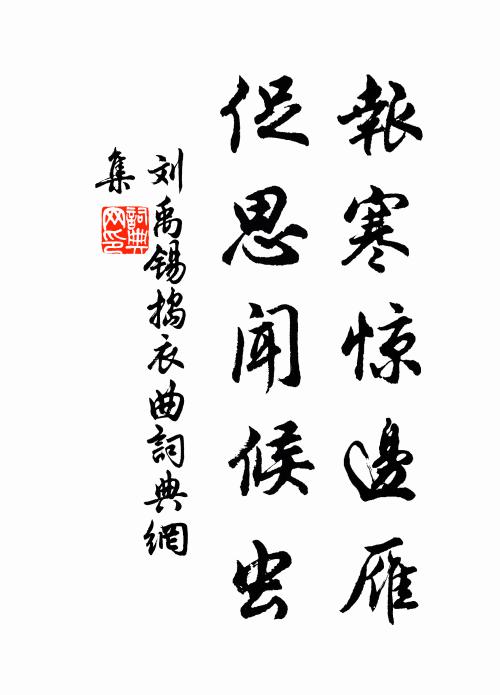 報寒惊邊雁
促思聞候虫
刘禹锡搗衣曲詞典網
集
詞典网印